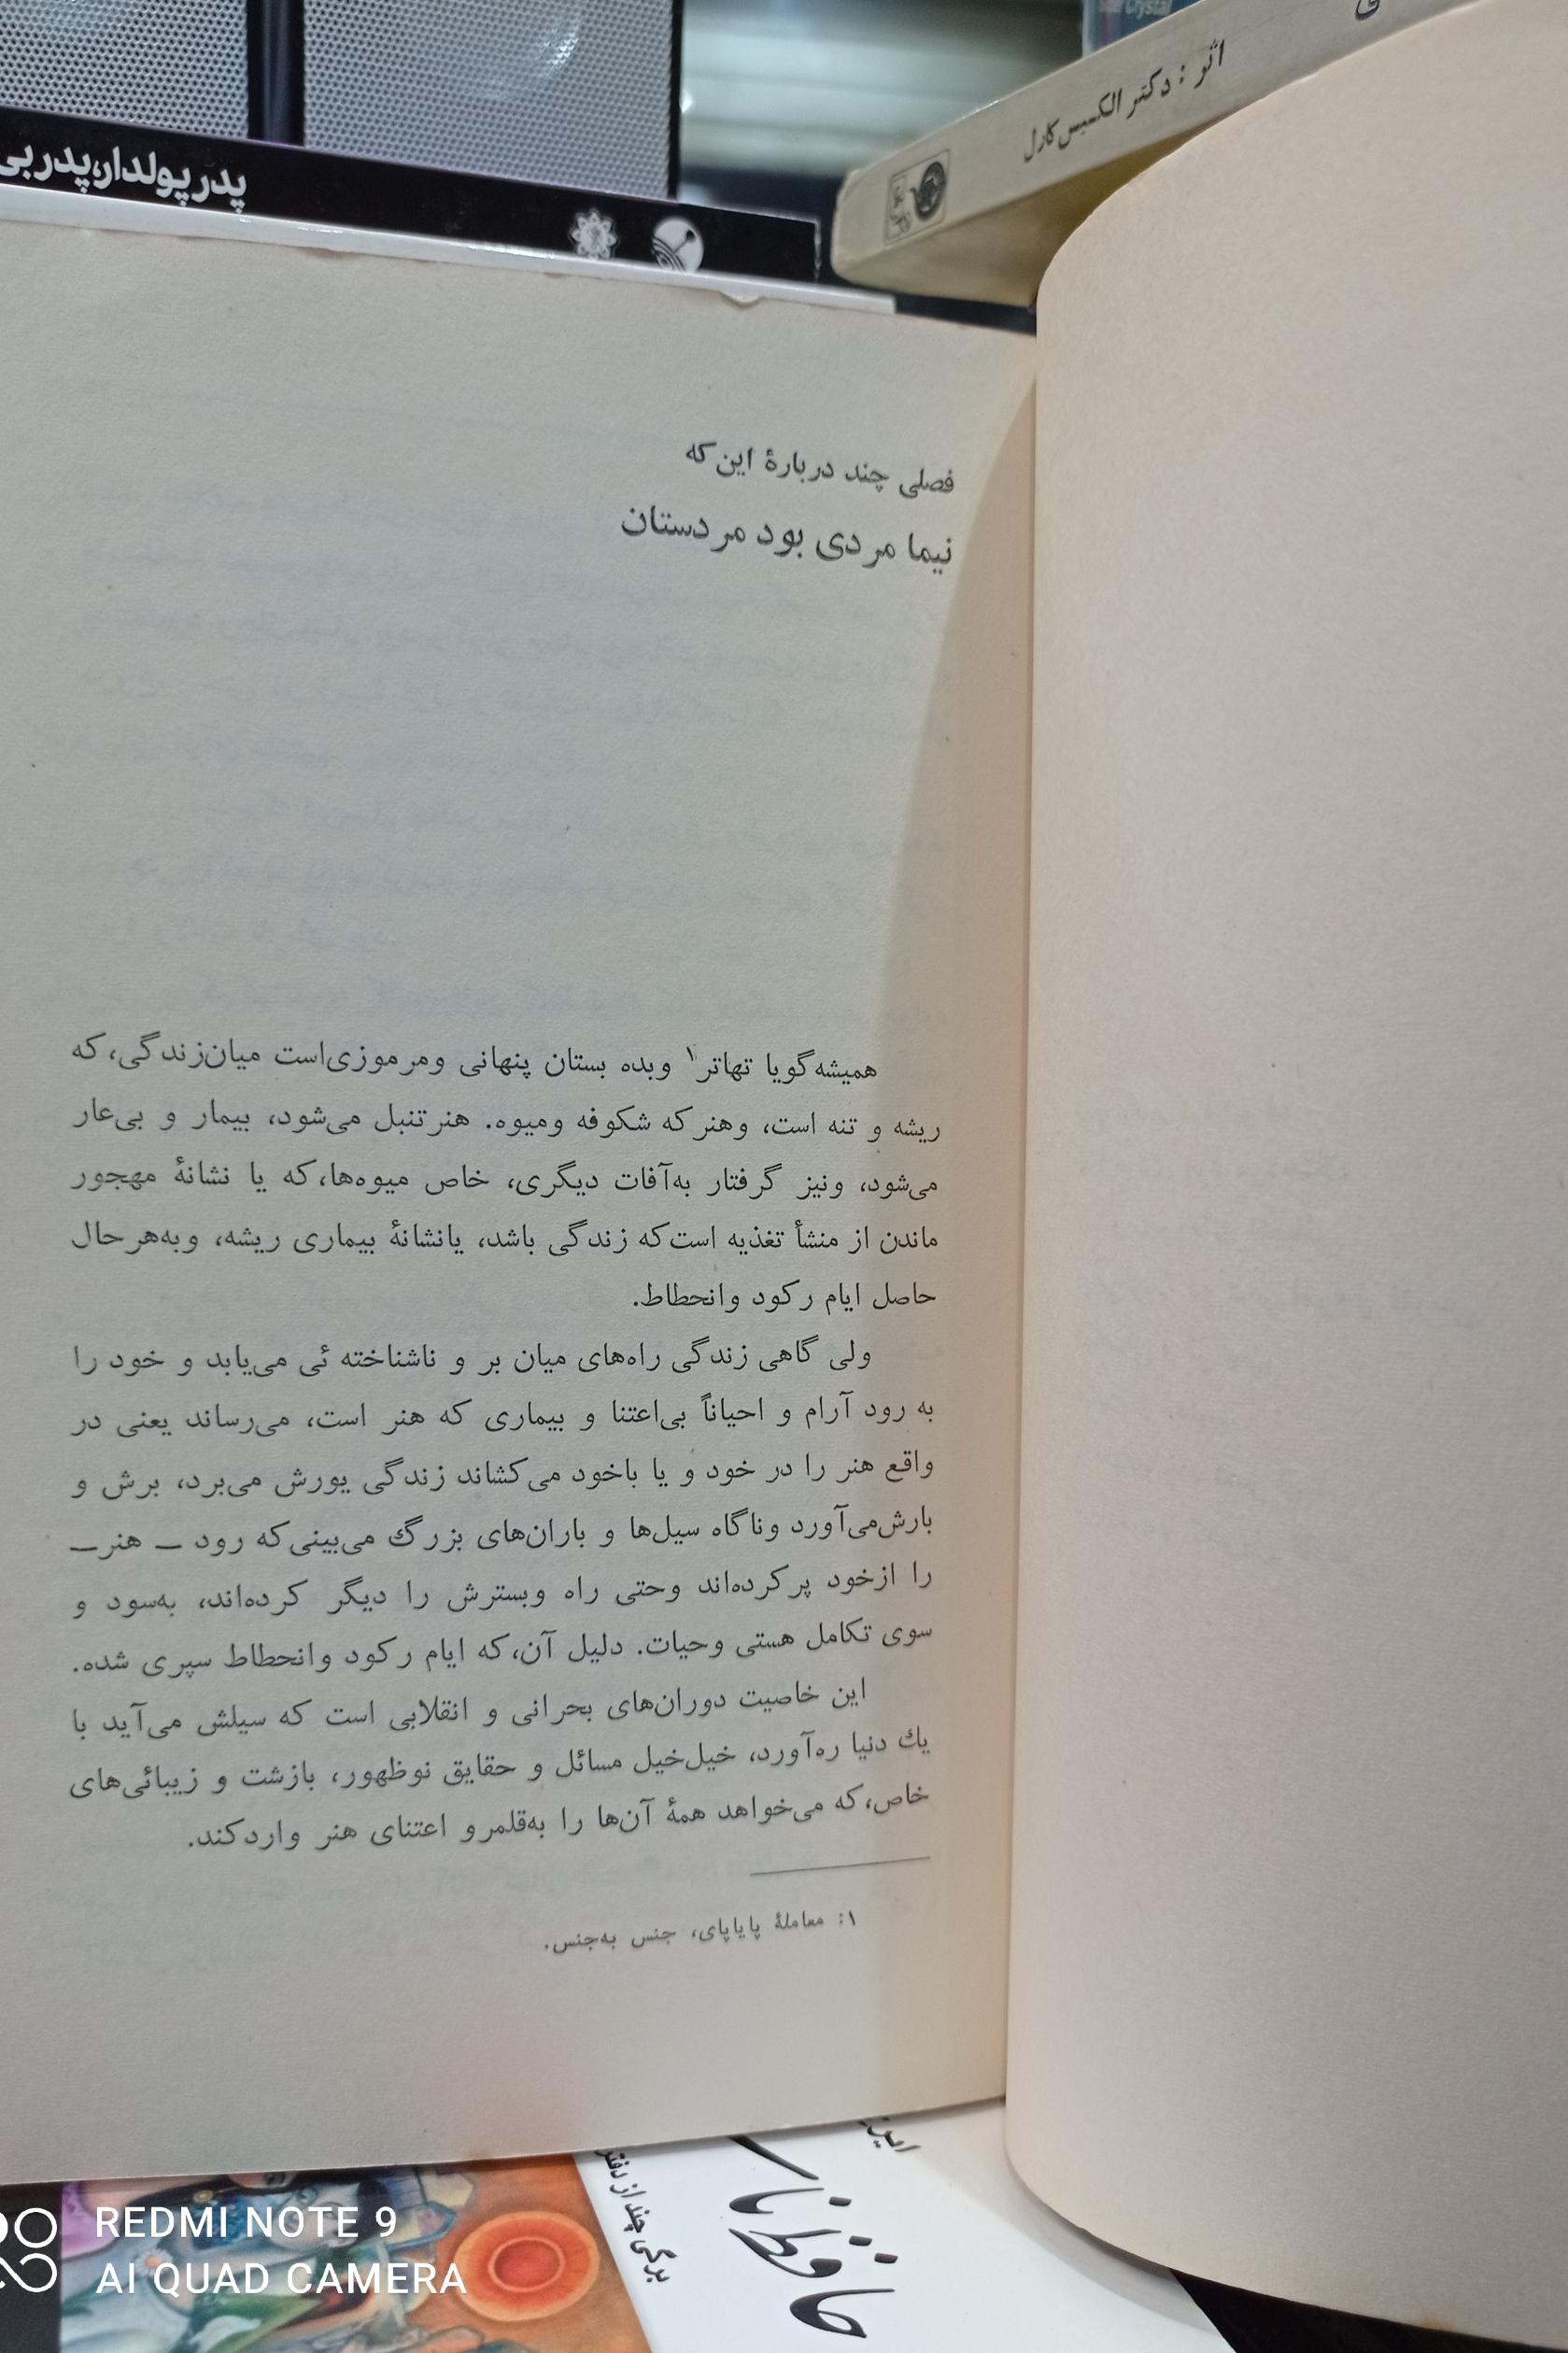 Crystal
اثر : دکتر الکسیس کارل
پدر پولدار،پدر بی
فصلی چند دربارهٔ این که
نیما مردی بود مردستان
همیشه گویا تهاتر۱ وبده بستان پنهانی ومرموزی‌است میان‌زندگی، که
ریشه و تنه است، وهنر که شکوفه ومیوه. هنر تنبل می‌شود، بیمار و بی‌عار
می‌شود، ونیز گرفتار به‌آفات دیگری، خاص میوه‌ها، که یا نشانهٔ مهجور
ماندن از منشأ تغذیه است‌که زندگی باشد، یانشانهٔ بیماری ریشه، وبه‌هرحال
حاصل ایام رکود وانحطاط.
ولی گاهی زندگی راه‌های میان بر و ناشناخته ئی می‌یابد و خود را
به رود آرام و احیاناً بی‌اعتنا و بیماری که هنر است، می‌رساند یعنی در
واقع هنر را در خود و یا باخود می‌کشاند زندگی یورش می‌برد، برش و
بارش‌می‌آورد وناگاه سیل‌ها و باران‌های بزرگ می‌بینی‌که رود — هنر—
را ازخود پرکرده‌اند وحتی راه وبسترش را دیگر کرده‌اند، به‌سود و
سوی تکامل هستی وحیات. دلیل آن، که ایام رکود وانحطاط سپری شده.
این خاصیت دوران‌های بحرانی و انقلابی است که سیلش می‌آید با
یك دنیا ره‌آورد، خیل‌خیل مسائل و حقایق نوظهور، بازشت و زیبائی‌های
خاص، که می‌خواهد همهٔ آن‌ها را به‌قلمرو اعتنای هنر وارد کند.
۱: معاملهٔ پایاپای، جنس به‌جنس.
برگی چند از دفتر
REDMI NOTE 9
AI QUAD CAMERA